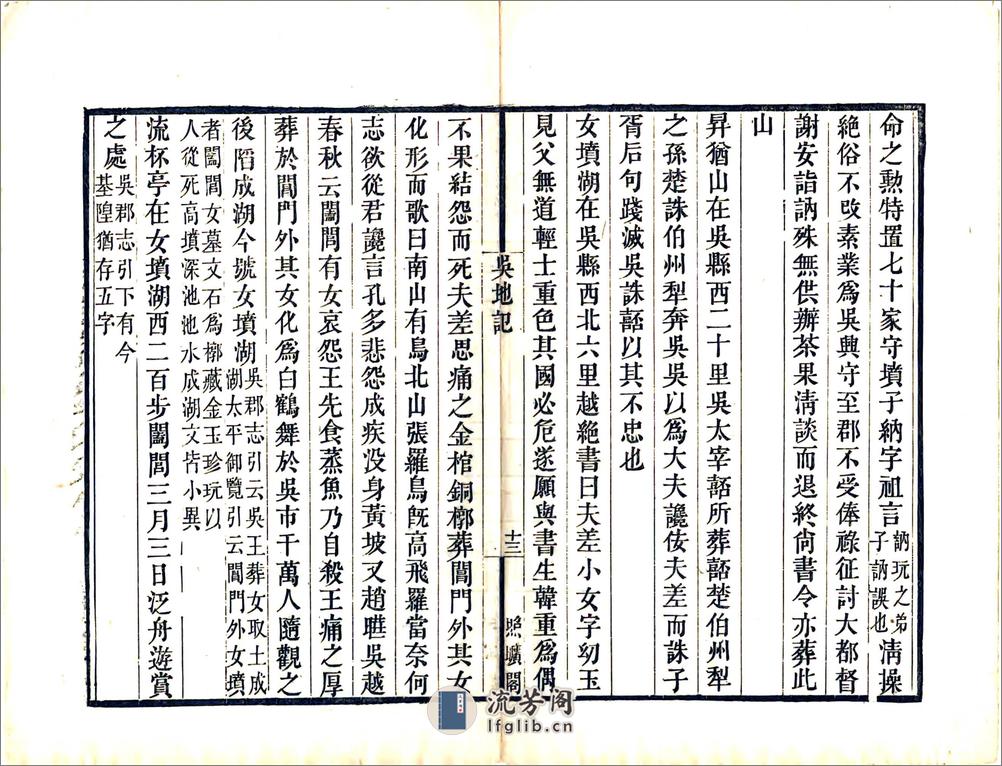 命之勲特置七十家守墳子納字祖言訥玩之弟子訥誤也淸操
絶俗不改素業爲吳興守至郡不受俸祿征討大都督
謝安詣訥殊無供辦茶果淸談而退終尙書令亦葬此
山
昇猶山在吳縣西二十里吳太宰嚭所葬嚭楚伯州犁
之孫楚誅伯州犁奔吳吳以爲大夫讒佞夫差而誅子
胥后句踐滅吳誅嚭以其不忠也
女墳湖在吳縣西北六里越絶書曰夫差小女字幼玉
見父無道輕士重色其國必危遂願與書生韓重爲偶
吳地記
十三
照曠閣
不果結怨而死夫差思痛之金棺銅槨葬閶門外其女
化形而歌曰南山有鳥北山張羅鳥旣高飛羅當奈何
志欲從君讒言孔多悲怨成疾没身黃坡又趙曄吳越
春秋云闔閭有女哀怨王先食蒸魚乃自殺王痛之厚
葬於閶門外其女化爲白鶴舞於吳市千萬人隨觀之
後陷成湖今號女墳湖吳郡志引云吳王葬女取土成
湖太平御覽引云閶門外女墳
者闔閭女墓文石爲槨藏金玉珍玩以
人從死高墳深池池水成湖文皆小異
流杯亭在女墳湖西二百步闔閭三月三日泛舟遊賞
之處吳郡志引下有今
基隍猶存五字
流芳阁
lfglib.cn